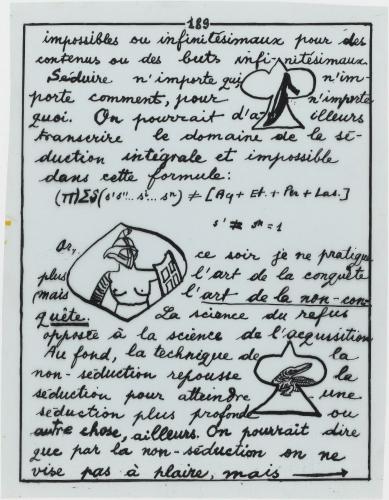 189
impossibles ou infinitésimaux pour des
contenus ou des buts infinitésimaux.
Séduire n'importe qui, n'im-
porte comment, pour n'importe
quoi. On pourrait d'ailleurs
transcrire le domaine de la sé-
duction intégrale et impossible
dans cette formule:
≠ [Aq + Et. + Per + Las.]
Or, ce soir je ne pratique
plus l'art de la conquête
mais l'art de la non-con-
quête. La science du refus
opposée à la science de l'acquisition
Au fond, la technique de la
non-séduction repousse la
séduction pour atteindre une
séduction plus profonde ou
autre chose, ailleurs. On pourrait dire
que par la non-séduction on ne
vise pas à plaire, mais →